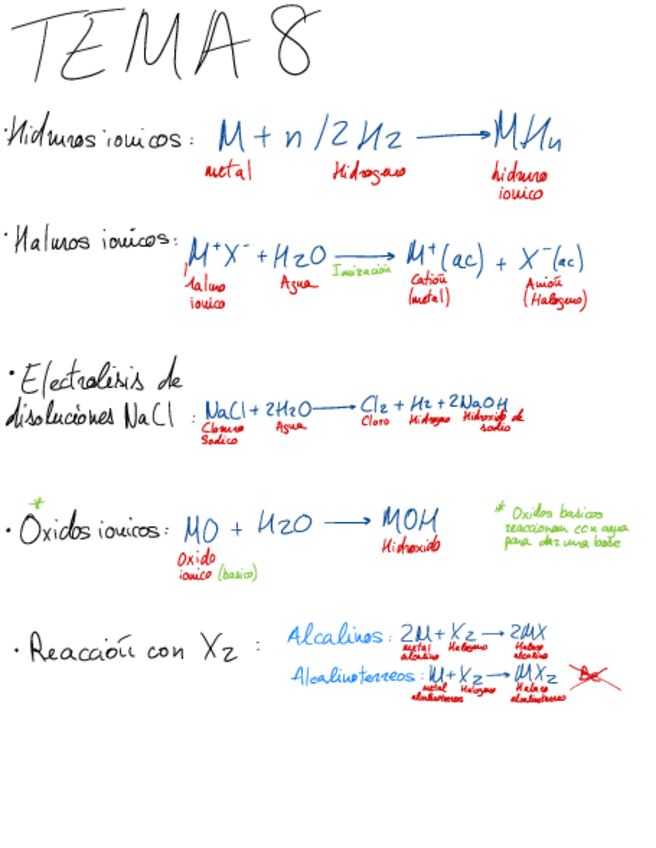 TEMA 8
· Hidruros ionicos: M + n/2 H2 → MHn
metal Hidrogeno hidruro ionico
· Haluros ionicos: M+X- + H2O Ionización → M+(ac) + X-(ac)
Haluro ionico Agua Catión (metal) Anión (Halogeno)
· Electrolisis de
disoluciones NaCl : NaCl + 2H2O → Cl2 + H2 + 2NaOH
Cloruro Sodico Agua Cloro Hidrogeno Hidroxido de sodio
*
· Oxidos ionicos: MO + H2O → MOH
Oxido ionico (basico) Hidroxido
* Oxidos basicos
reaccionan con agua
para dar una base
· Reacción con X2 : Alcalinos: 2M + X2 → 2MX
metal alcalino Halogeno Haluro alcalino
Alcalinoterreos: M + X2 → MX2 Be
metal alcalinoterreo Halogeno Haluro alcalinoterreo